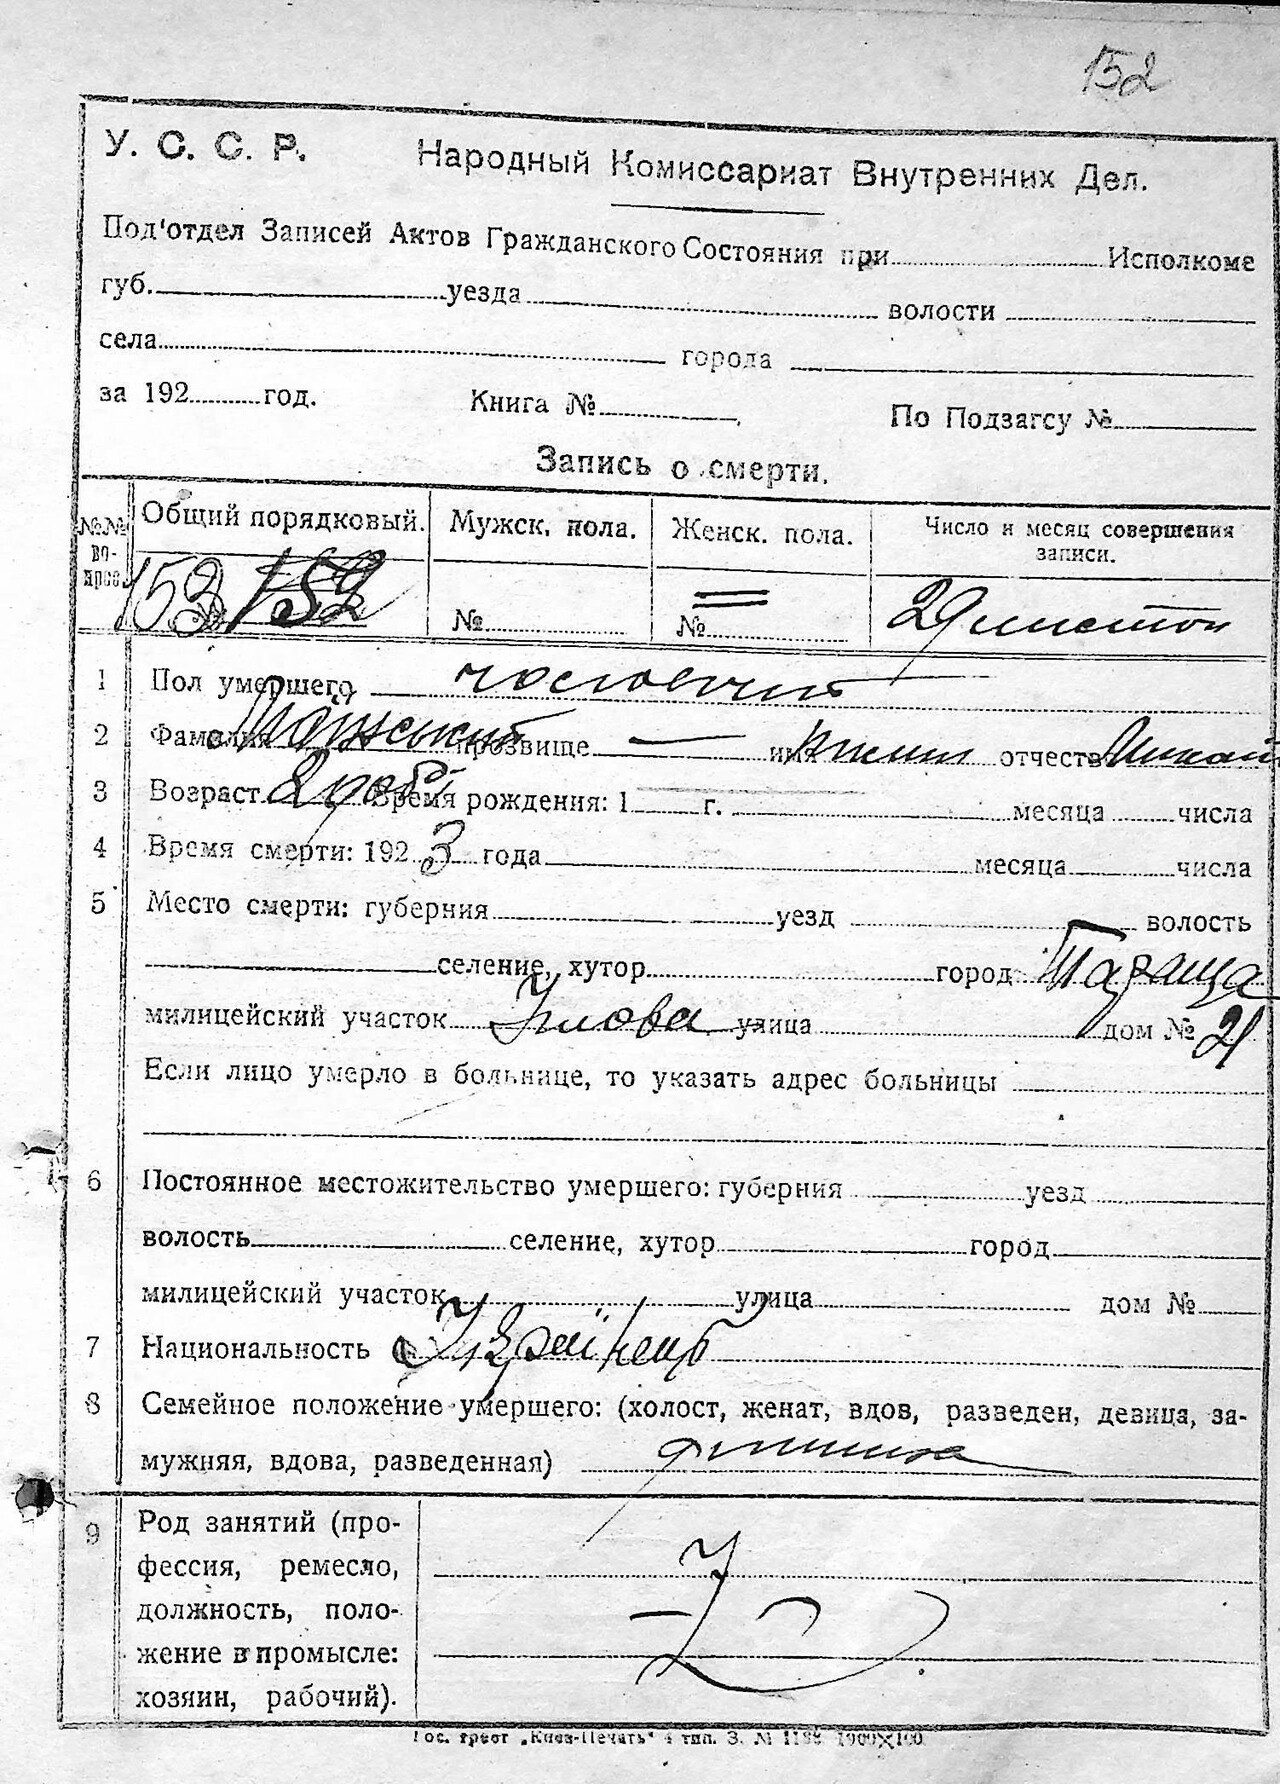 152
У. С. С. Р. Народный Комиссариат Внутренних Дел.
Под'отдел Записей Актов Гражданского Состояния при Исполкоме
губ. уезда волости
села города
за 192 год. Книга № По Подзагсу №
Запись о смерти.
№№ во- прос. Общий порядковый. Мужск. пола. Женск. пола. Число и месяц совершения записи.
153 152 № № 29
1 Пол умершего чоловічий
2 Фамилия прозвище — имя отчеств
3 Возраст 2 Время рождения: 1 г. месяца числа
4 Время смерти: 192 3 года месяца числа
5 Место смерти: губерния уезд волость
селение, хутор город Тараща
милицейский участок улица дом № 21
Если лицо умерло в больнице, то указать адрес больницы
6 Постоянное местожительство умершего: губерния уезд
волость селение, хутор город
милицейский участок улица дом №
7 Национальность Українець
8 Семейное положение умершего: (холост, женат, вдов, разведен, девица, за-
мужняя, вдова, разведенная)
9 Род занятий (про-
фессия, ремесло,
должность, поло-
жение в промысле:
хозяин, рабочий).
Гос. трест „Киев-Печать" 4 тип. З. №